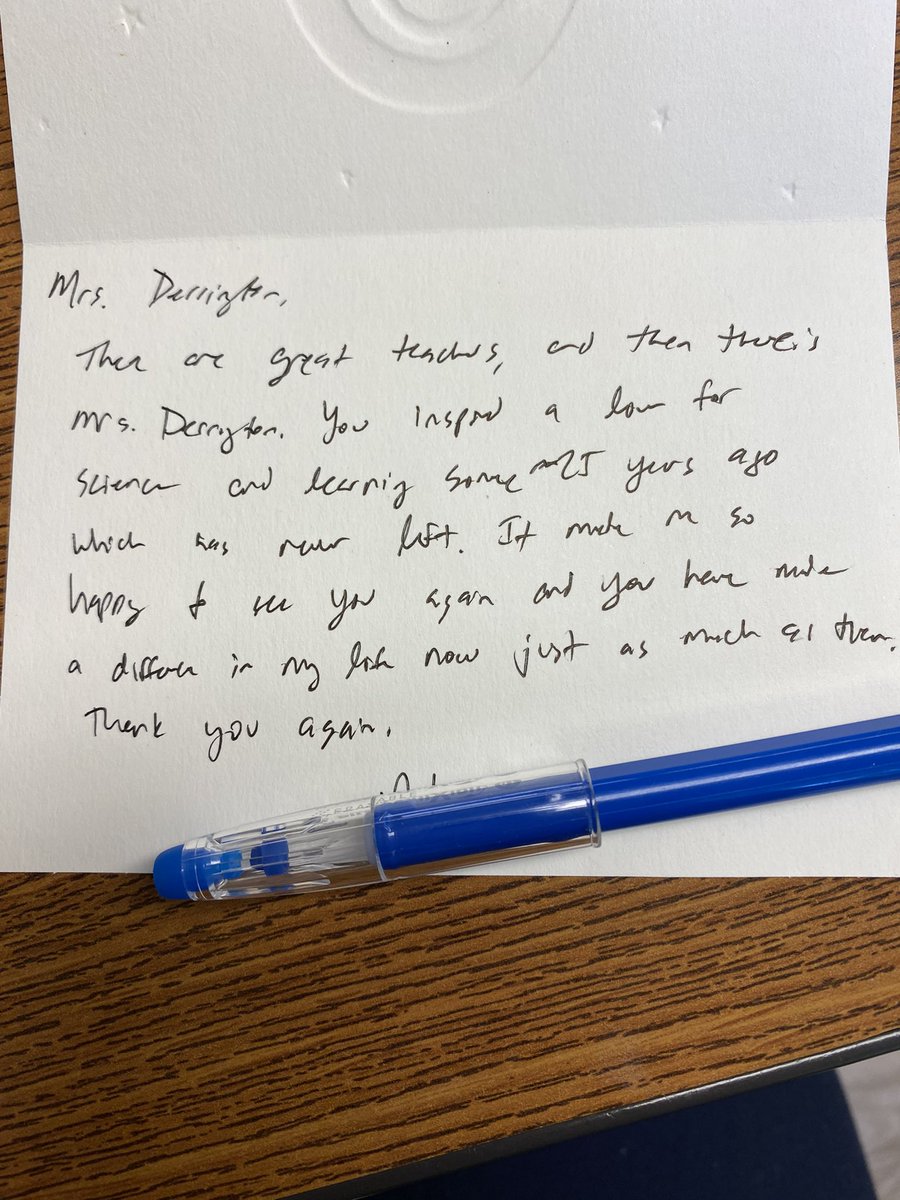 Mrs. Derrington,
There are great teachers, and then there's
Mrs. Derrington. You inspired a love for
science and learning some 25 years ago
which has never left. It made me so
happy to see you again and you have made
a difference in my life now just as much as then.
Thank you again.